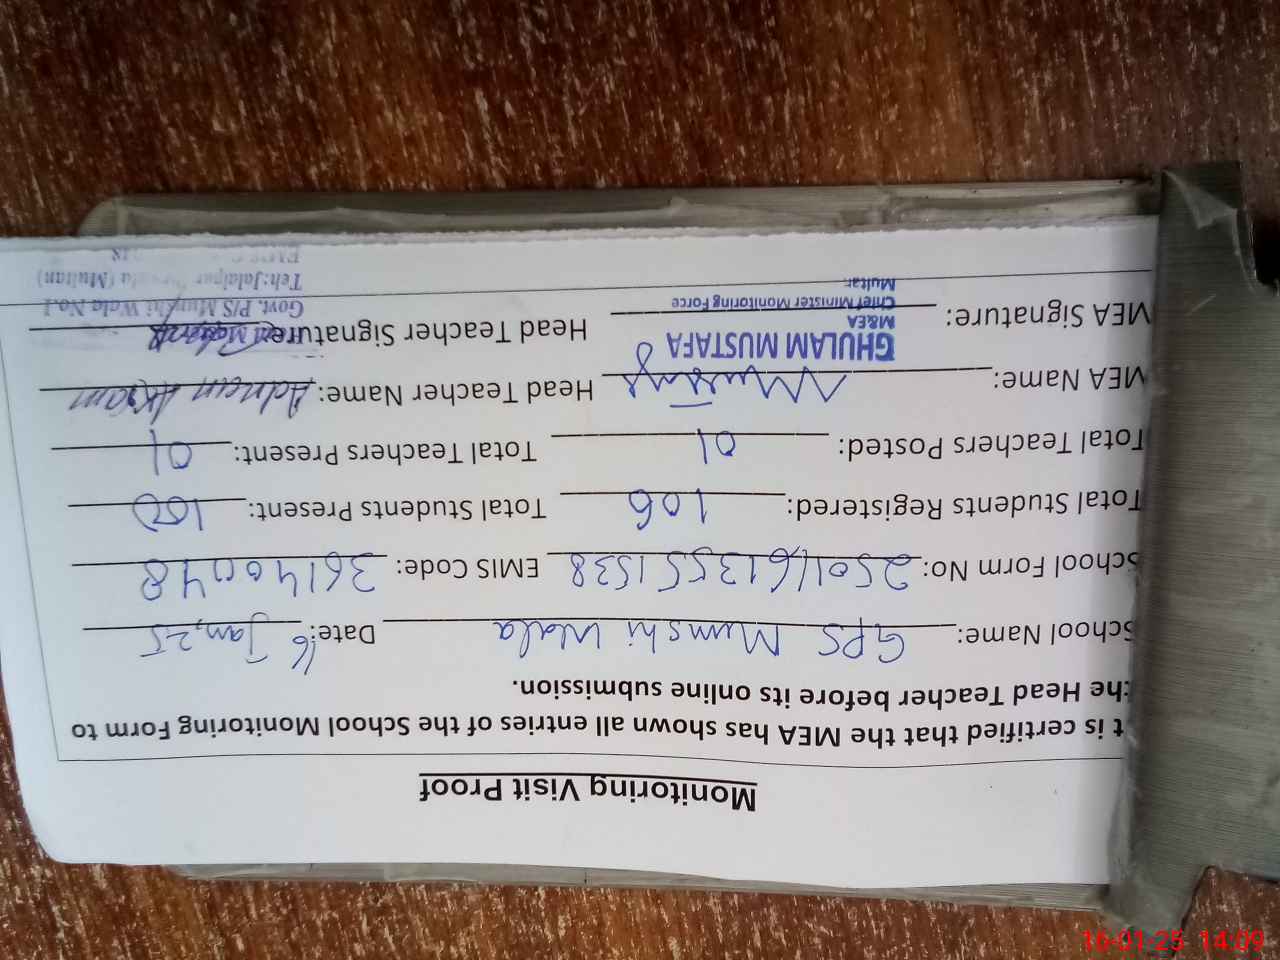 Monitoring Visit Proof
t is certified that the MEA has shown all entries of the School Monitoring Form to
the Head Teacher before its online submission.
School Name: GPS Munshi Wala Date: 16 Jan, 25
School Form No: 25011613551538 EMIS Code: 36140048
Total Students Registered: 106 Total Students Present: 100
Total Teachers Posted: 01 Total Teachers Present: 01
MEA Name: Mustafa Head Teacher Name: Adnan Akram
GHULAM MUSTAFA
M&EA
MEA Signature: Head Teacher Signature:
Chief Minister Monitoring Force
Multan
Govt. P/S Munshi Wala No.1
Teh: Jalalpur (Multan)
16-01-25 14:09